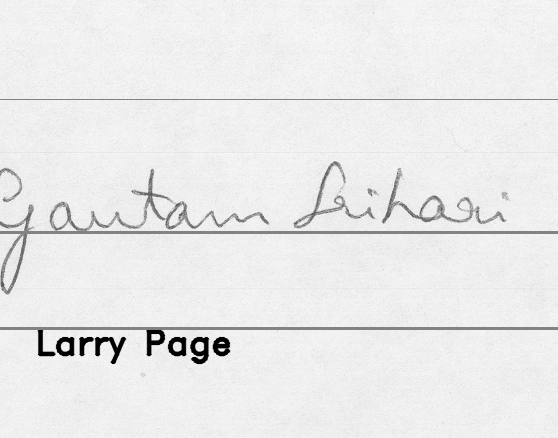 Gautam Srihari
Larry Page